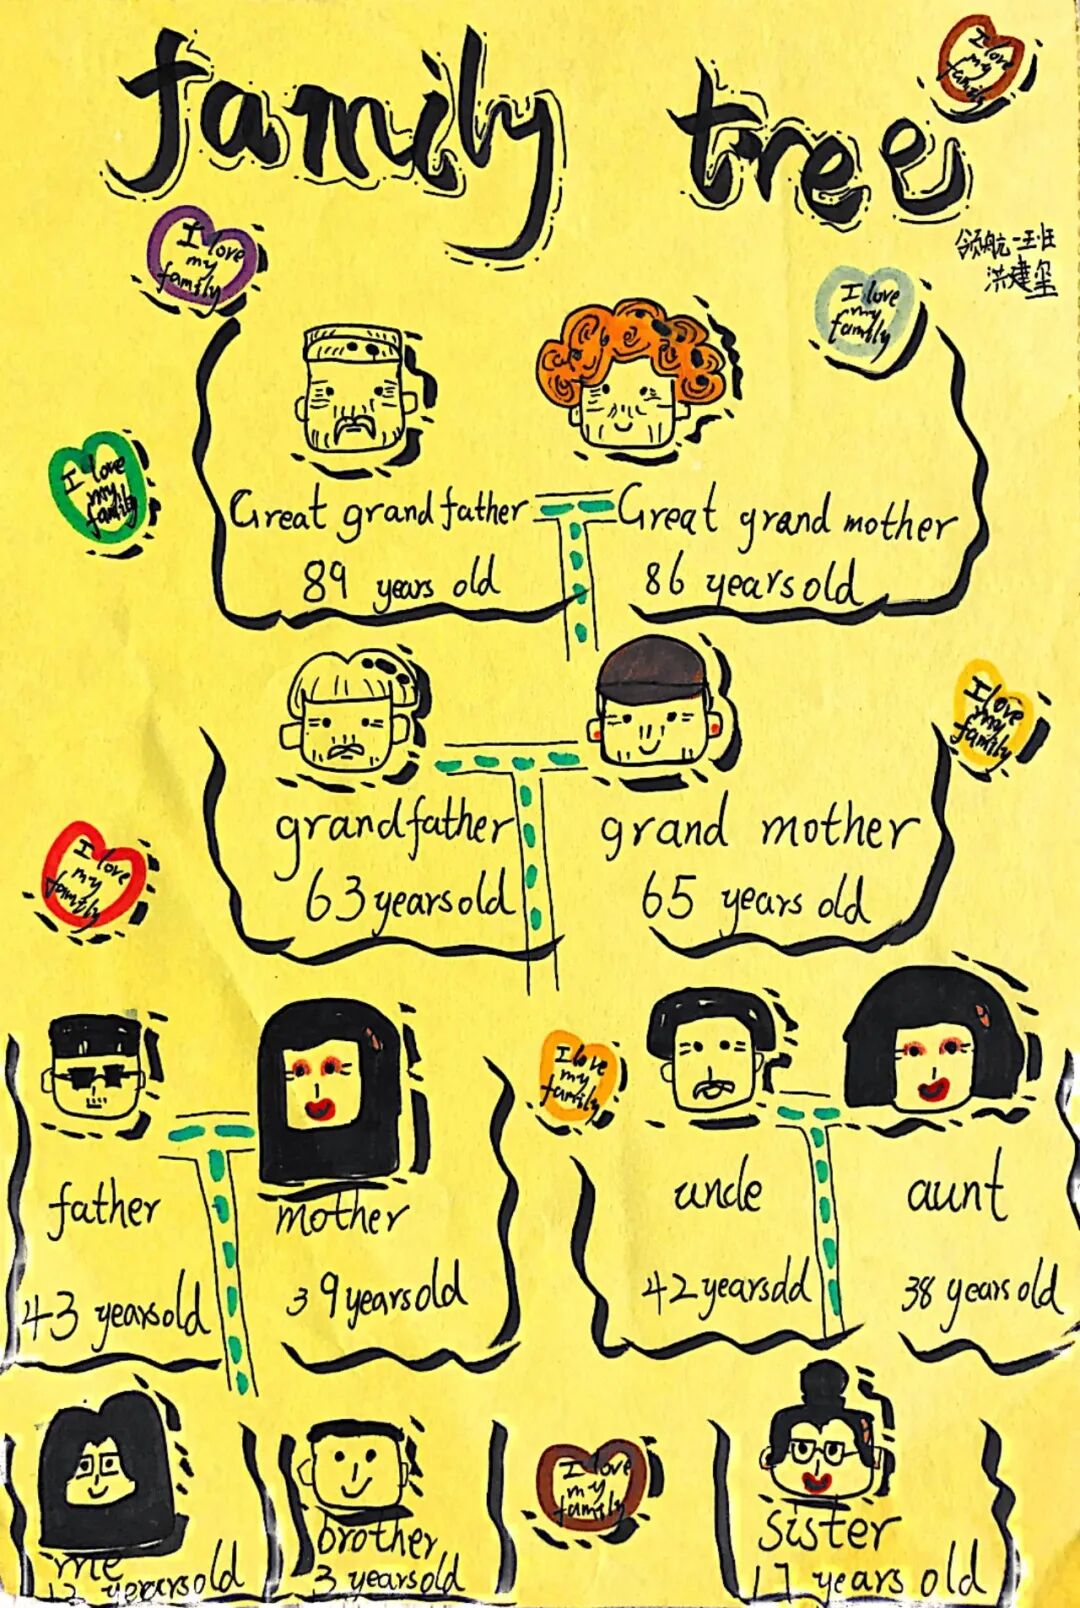 family tree
I love
my
family
领航一班
洪建玺
I love
my
family
I love
my
family
I love
my
family
Great grandfather
89 years old
Great grand mother
86 years old
I love
my
family
grandfather
63 years old
grand mother
65 years old
I love
my
family
I love
my
family
father
43 years old
mother
39 years old
uncle
42 years old
aunt
38 years old
me
years old
brother
3 years old
I love
my
family
sister
17 years old